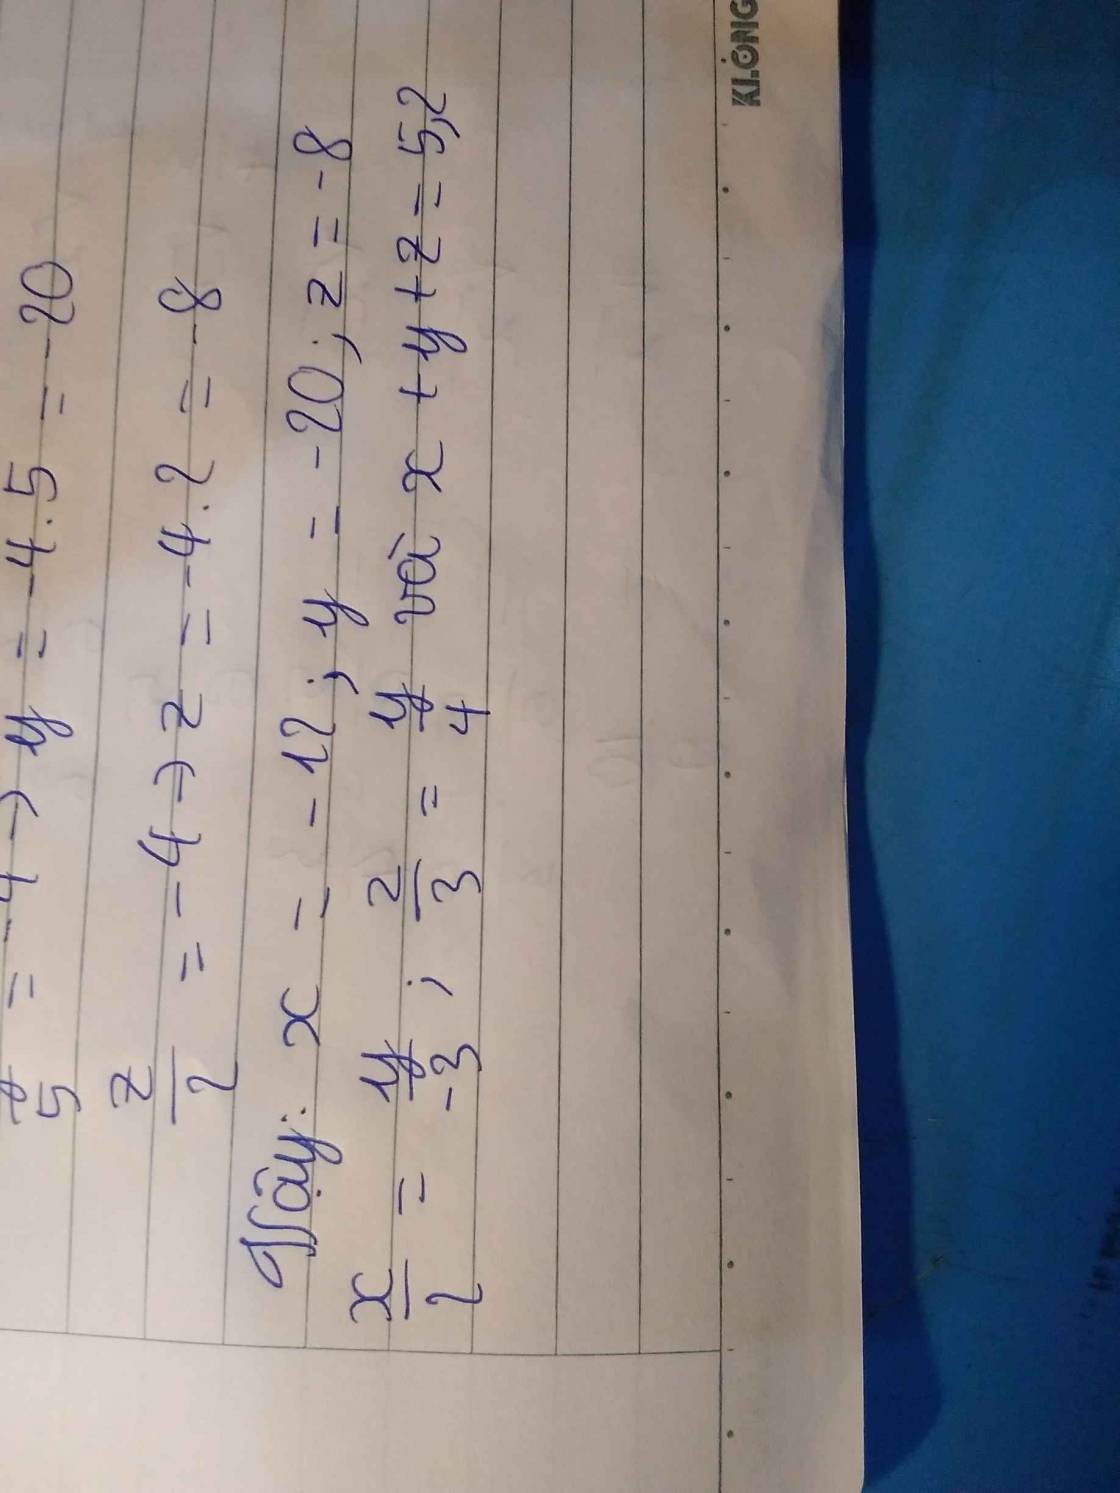 y/5 = -4 → y = -4.5 = -20
z/2 = -4 → z = -4.2 = -8
Vậy: x = -12 ; y = -20 ; z = -8
x/2 = y/-3 ; z/3 = y/4 và x + y + z = 5,2
KLONG